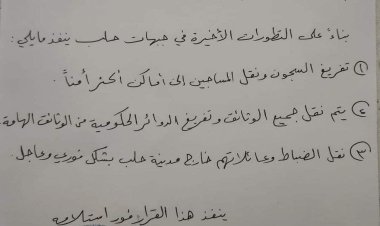 بناءً على التطورات الأخيرة في جبهات حلب ينفذ مايلي :
① تفريغ السجون ونقل المساجين إلى أماكن أكثر أمناً .
② يتم نقل جميع الوثائق وتفريغ الدوائر الحكومية من الوثائق الهامة
③ نقل الضباط وعائلاتهم خارج مدينة حلب بشكل فوري وعاجل .
ينفذ هذا القرار فور استلامه